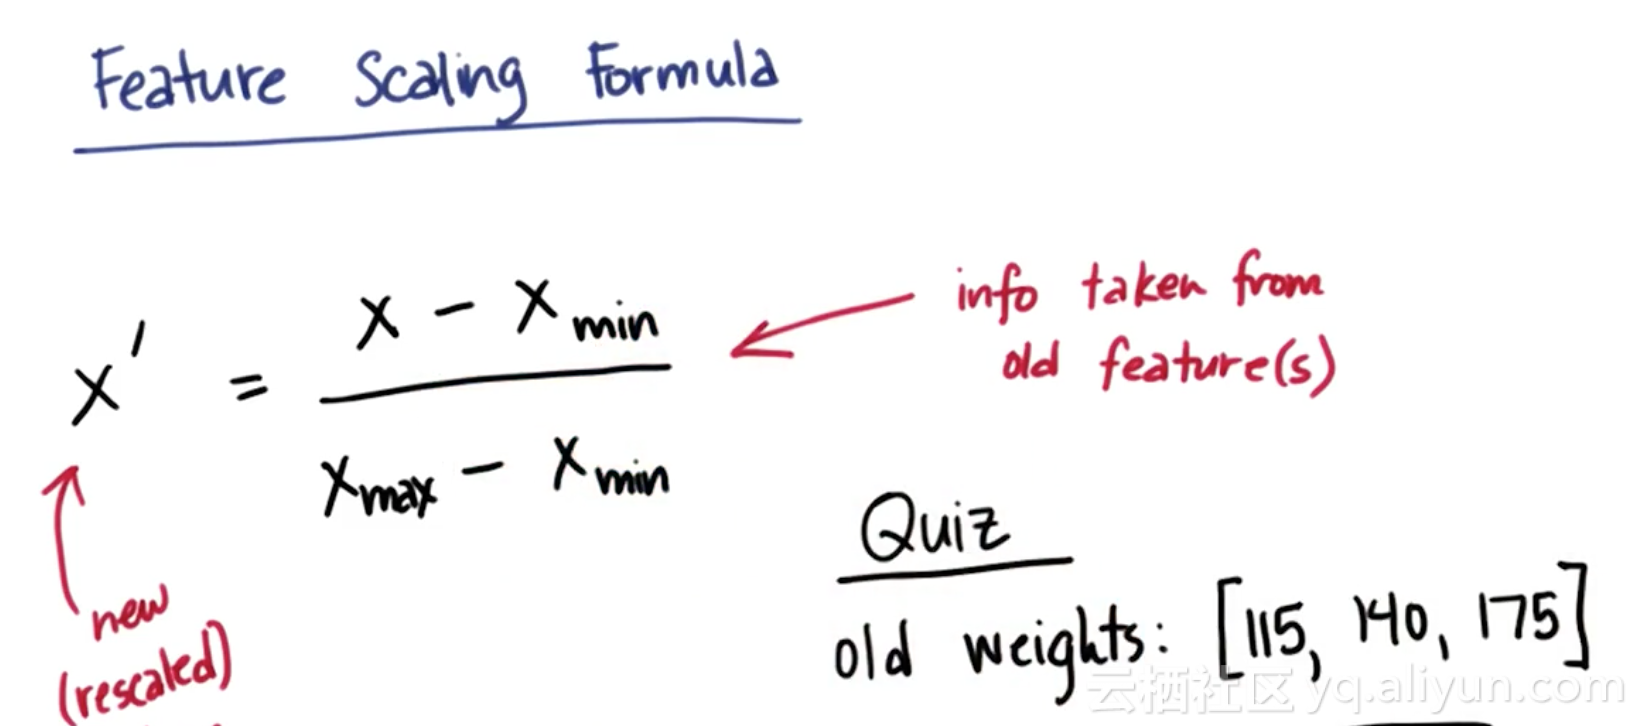 Feature Scaling Formula
x' = (x - x min) / (x max - x min)
info taken from
old feature(s)
new
(rescaled)
Quiz
old weights: [115, 140, 175]
云栖社区 yq.aliyun.com